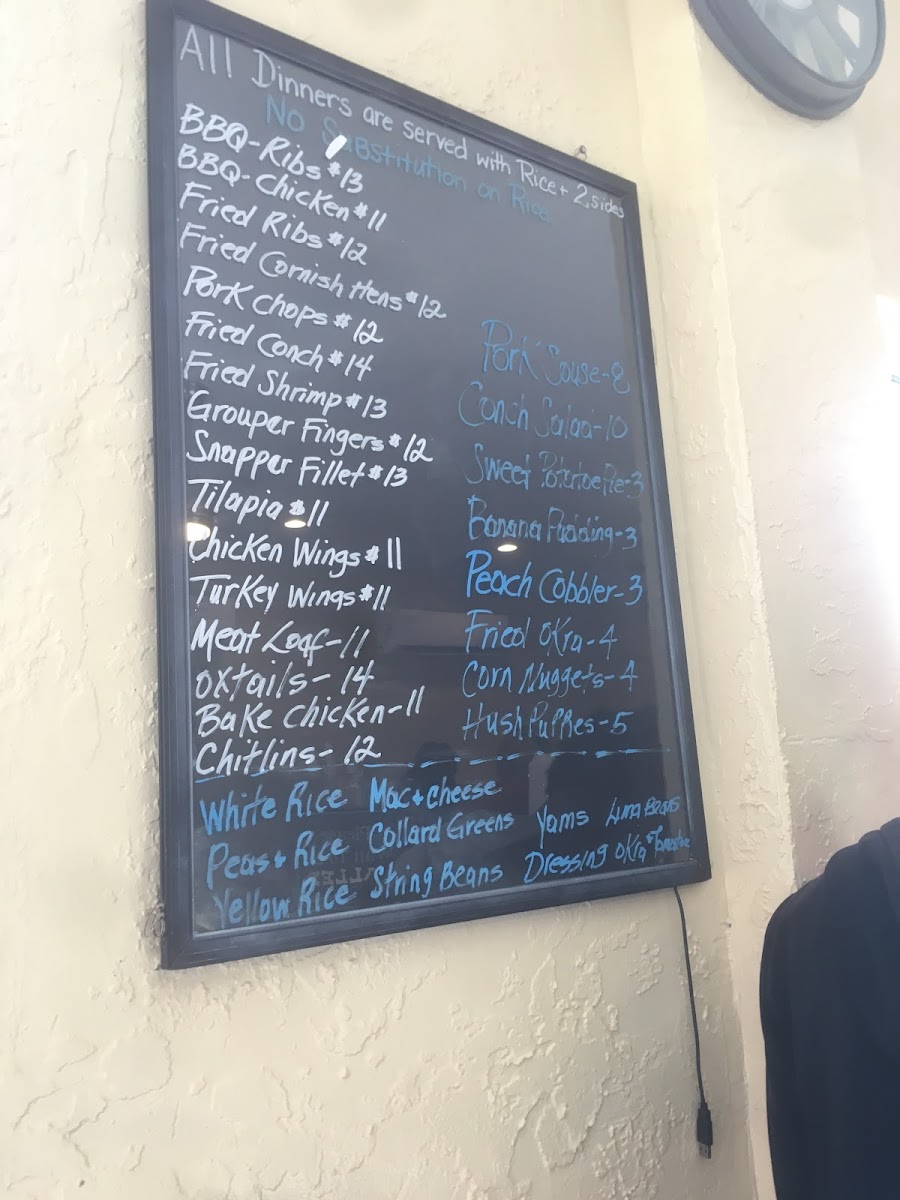 All Dinners are served with Rice + 2, sides
No Substitution on Rice
BBQ-Ribs $13
BBQ-Chicken $11
Fried Ribs $12
Fried Cornish Hens $12
Pork Chops $12
Fried Conch $14
Fried Shrimp $13
Grouper Fingers $12
Snapper Fillet $13
Tilapia $11
Chicken Wings $11
Turkey Wings $11
Meat Loaf-11
Oxtails-14
Bake Chicken-11
Chitlins-12
Pork Souse-8
Conch Salad-10
Sweet Potatoe Pie-3
Banana Pudding-3
Peach Cobbler-3
Fried Okra-4
Corn Nuggets-4
Hush Puppies-5
White Rice Mac + cheese
Peas + Rice Collard Greens Yams Lima Beans
Yellow Rice String Beans Dressing Okra + Tomatoe